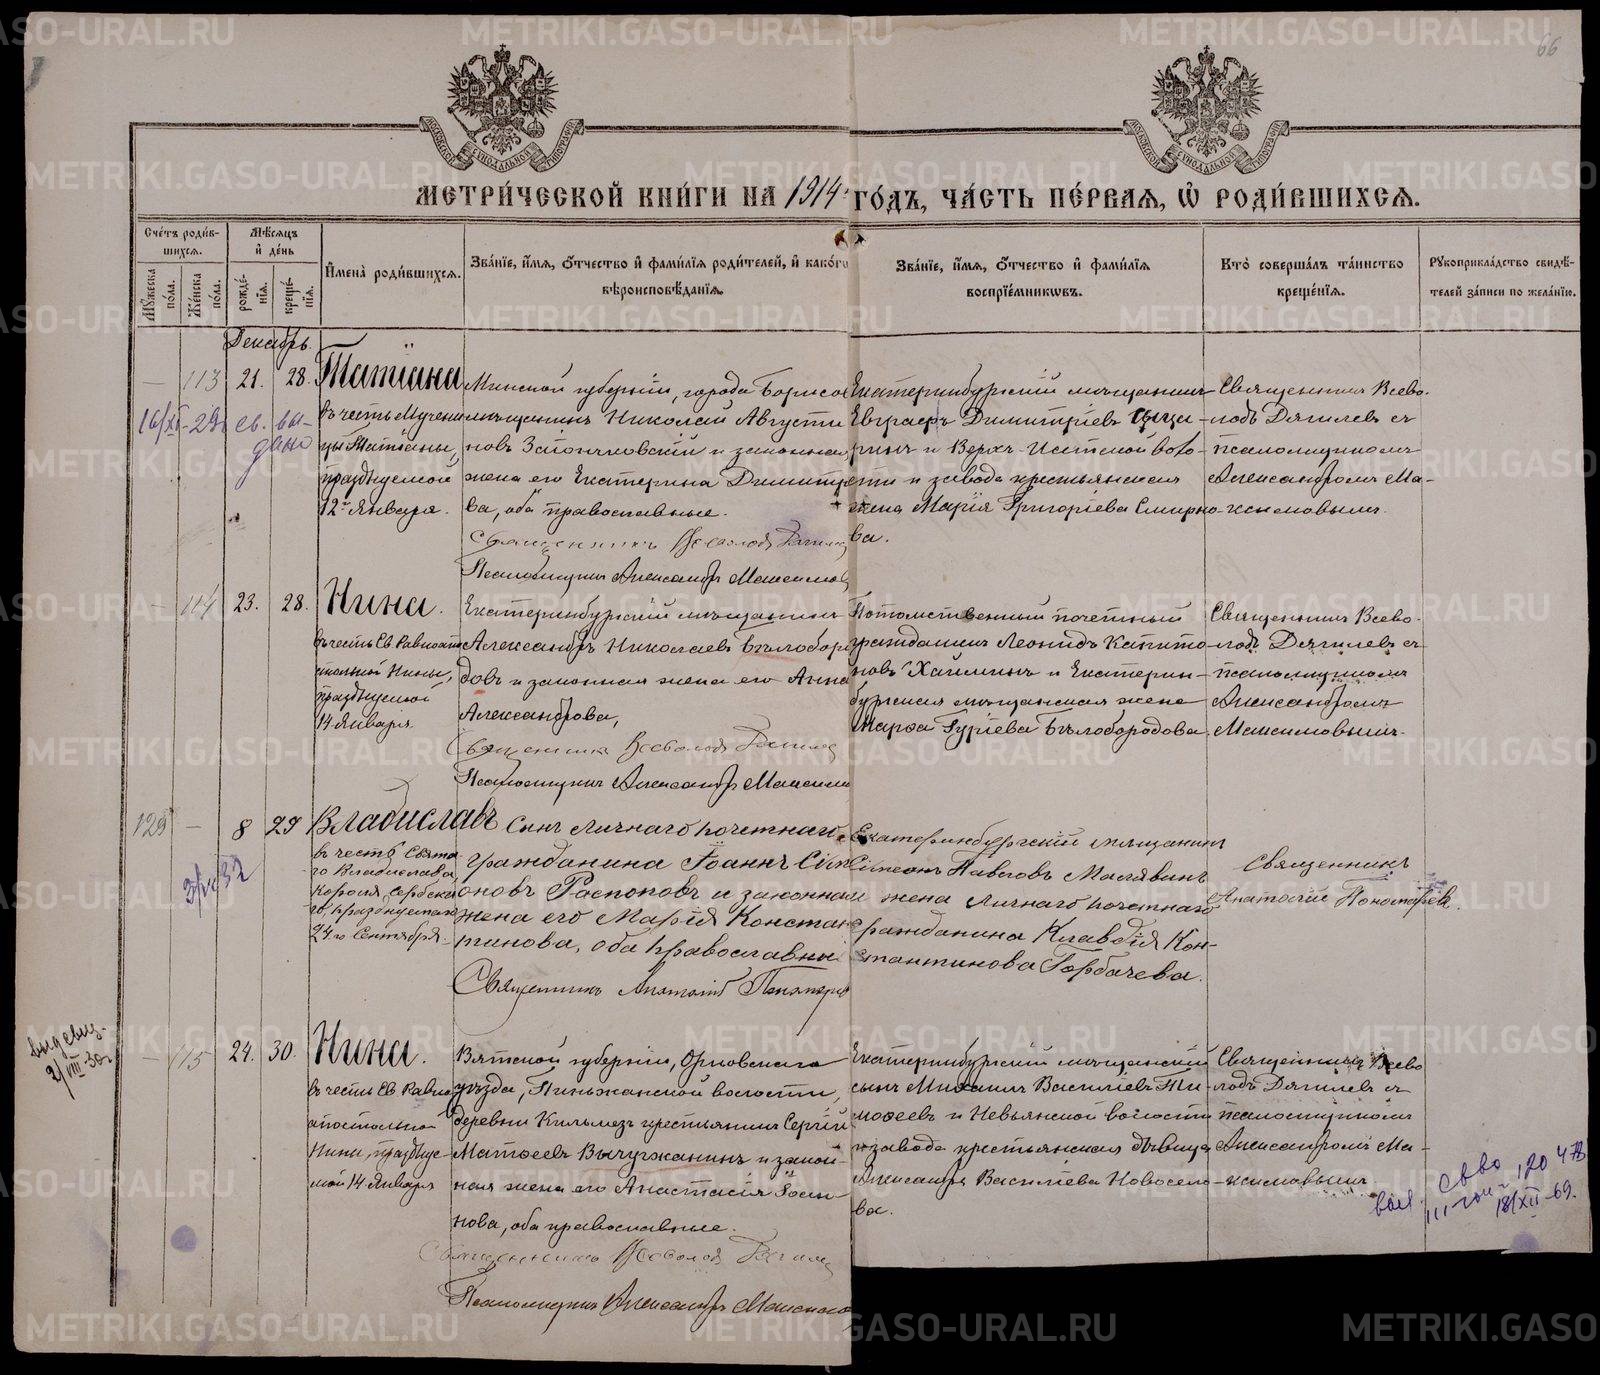 66
МЕТРИ́ЧЕСКОЙ КНИ́ГИ НА 1914 ГО́ДЪ, ЧА́СТЬ ПЕ́РВАЯ, Ѡ РОДИ́ВШИХСЯ.
Сче́тъ роди́в-
шихся.
Мѣсяцъ
и҆ де́нь
Мꙋ́жеска
по́ла.
Же́нска
по́ла.
рожде́-
нїя.
креще́-
нїя.
И҆мена̀ роди́вшихся.
Зва́нїе, и҆́мя, Ѻ҆́тчество и҆ фами́лїя роди́телей, и҆ како́гѡ
вѣроисповѣ́данїя.
Зва́нїе, и҆́мя, Ѻ҆́тчество и҆ фами́лїя
воспрїе́мникѡвъ.
Кто̀ соверша́лъ та́инство
креще́нїя.
Рꙋкоприкла́дство свидѣ́-
телей за́писи по жела́нїю.
Декабрь.
— 113 21. 28. Татіана
въ честь Мучени
цы Татіаны,
празднуемой
12го Января.
Минской губерніи, города Борисов
мѣщанинъ Николай Августи
новъ Затончковскій и законная
жена его Екатерина Димитр
ва, оба православные.
Священникъ Всеволодъ Дягилев
Псаломщикъ Александръ Максимов
Екатеринбургскій мѣщанинъ
Евграфъ Димитріевъ
ринъ и Верхъ-Исетской воло-
сти и завода крестьянская
жена Марія Григоріева Смирно-
ва.
Священникъ Всево-
лодъ Дягилевъ съ
псаломщикомъ
Александромъ Ма-
ксимовымъ.
16/XI-29 св. вы-
дано
— 114 23. 28. Нина.
въ честь Св Равноапо
стольной Нины,
празднуемой
14 Января
Екатеринбургскій мѣщанинъ
Александръ Николаевъ Бѣлобор
довъ и законная жена его Анна
Александрова,
Священникъ Всеволодъ Дягилев
Псаломщикъ Александръ Максим
Потомственный почетный
гражданинъ Леонидъ Капито-
новъ Хайминъ и Екатерин-
бургская мѣщанская жена
Марѳа Гуріева Бѣлобородова.
Священникъ Всево-
лодъ Дягилевъ съ
псаломщикомъ
Александромъ
Максимовымъ.
129 — 8 29 Владиславъ
въ честь Свята
го Владислава,
короля Сербска
го, празднуемаго
24го Сентября.
Сынъ личнаго почетнаго
гражданина Іоаннъ Сим
оновъ Распоповъ и законная
жена его Марія Констан
тинова, оба православные
Священникъ Анатолій Пономарев
Екатеринбургскій мѣщанинъ
Симеонъ Павловъ Малявинъ
и жена личнаго почетнаго
гражданина Клавдія Кон-
стантинова Горбачева.
Священникъ
Анатолій Пономаревъ.
— 115 24. 30. Нина.
въ честь Св Равно
апостольной
Нины, праздну-
мой 14 Января
Вятской губерніи, Орловскаго
уѣзда, Пинжанской волости,
деревни Кильмезъ крестьянинъ Сергій
Матѳеевъ Вычугжанинъ и закон-
ная жена его Анастасія Іосы-
нова, оба православные.
Священникъ Всеволодъ Дягилев
Псаломщикъ Александръ Максимов
Екатеринбургскій мѣщанскій
сынъ Михаилъ Василіевъ Ти-
моѳеевъ и Невьянской волости
и завода крестьянская дѣвица
Александра Василіева Новосело-
ва.
Священникъ Всево
лодъ Дягилевъ съ
псаломщикомъ
Александромъ Ма-
ксимовымъ
18/XII-69.
METRIKI.GASO-URAL.RU